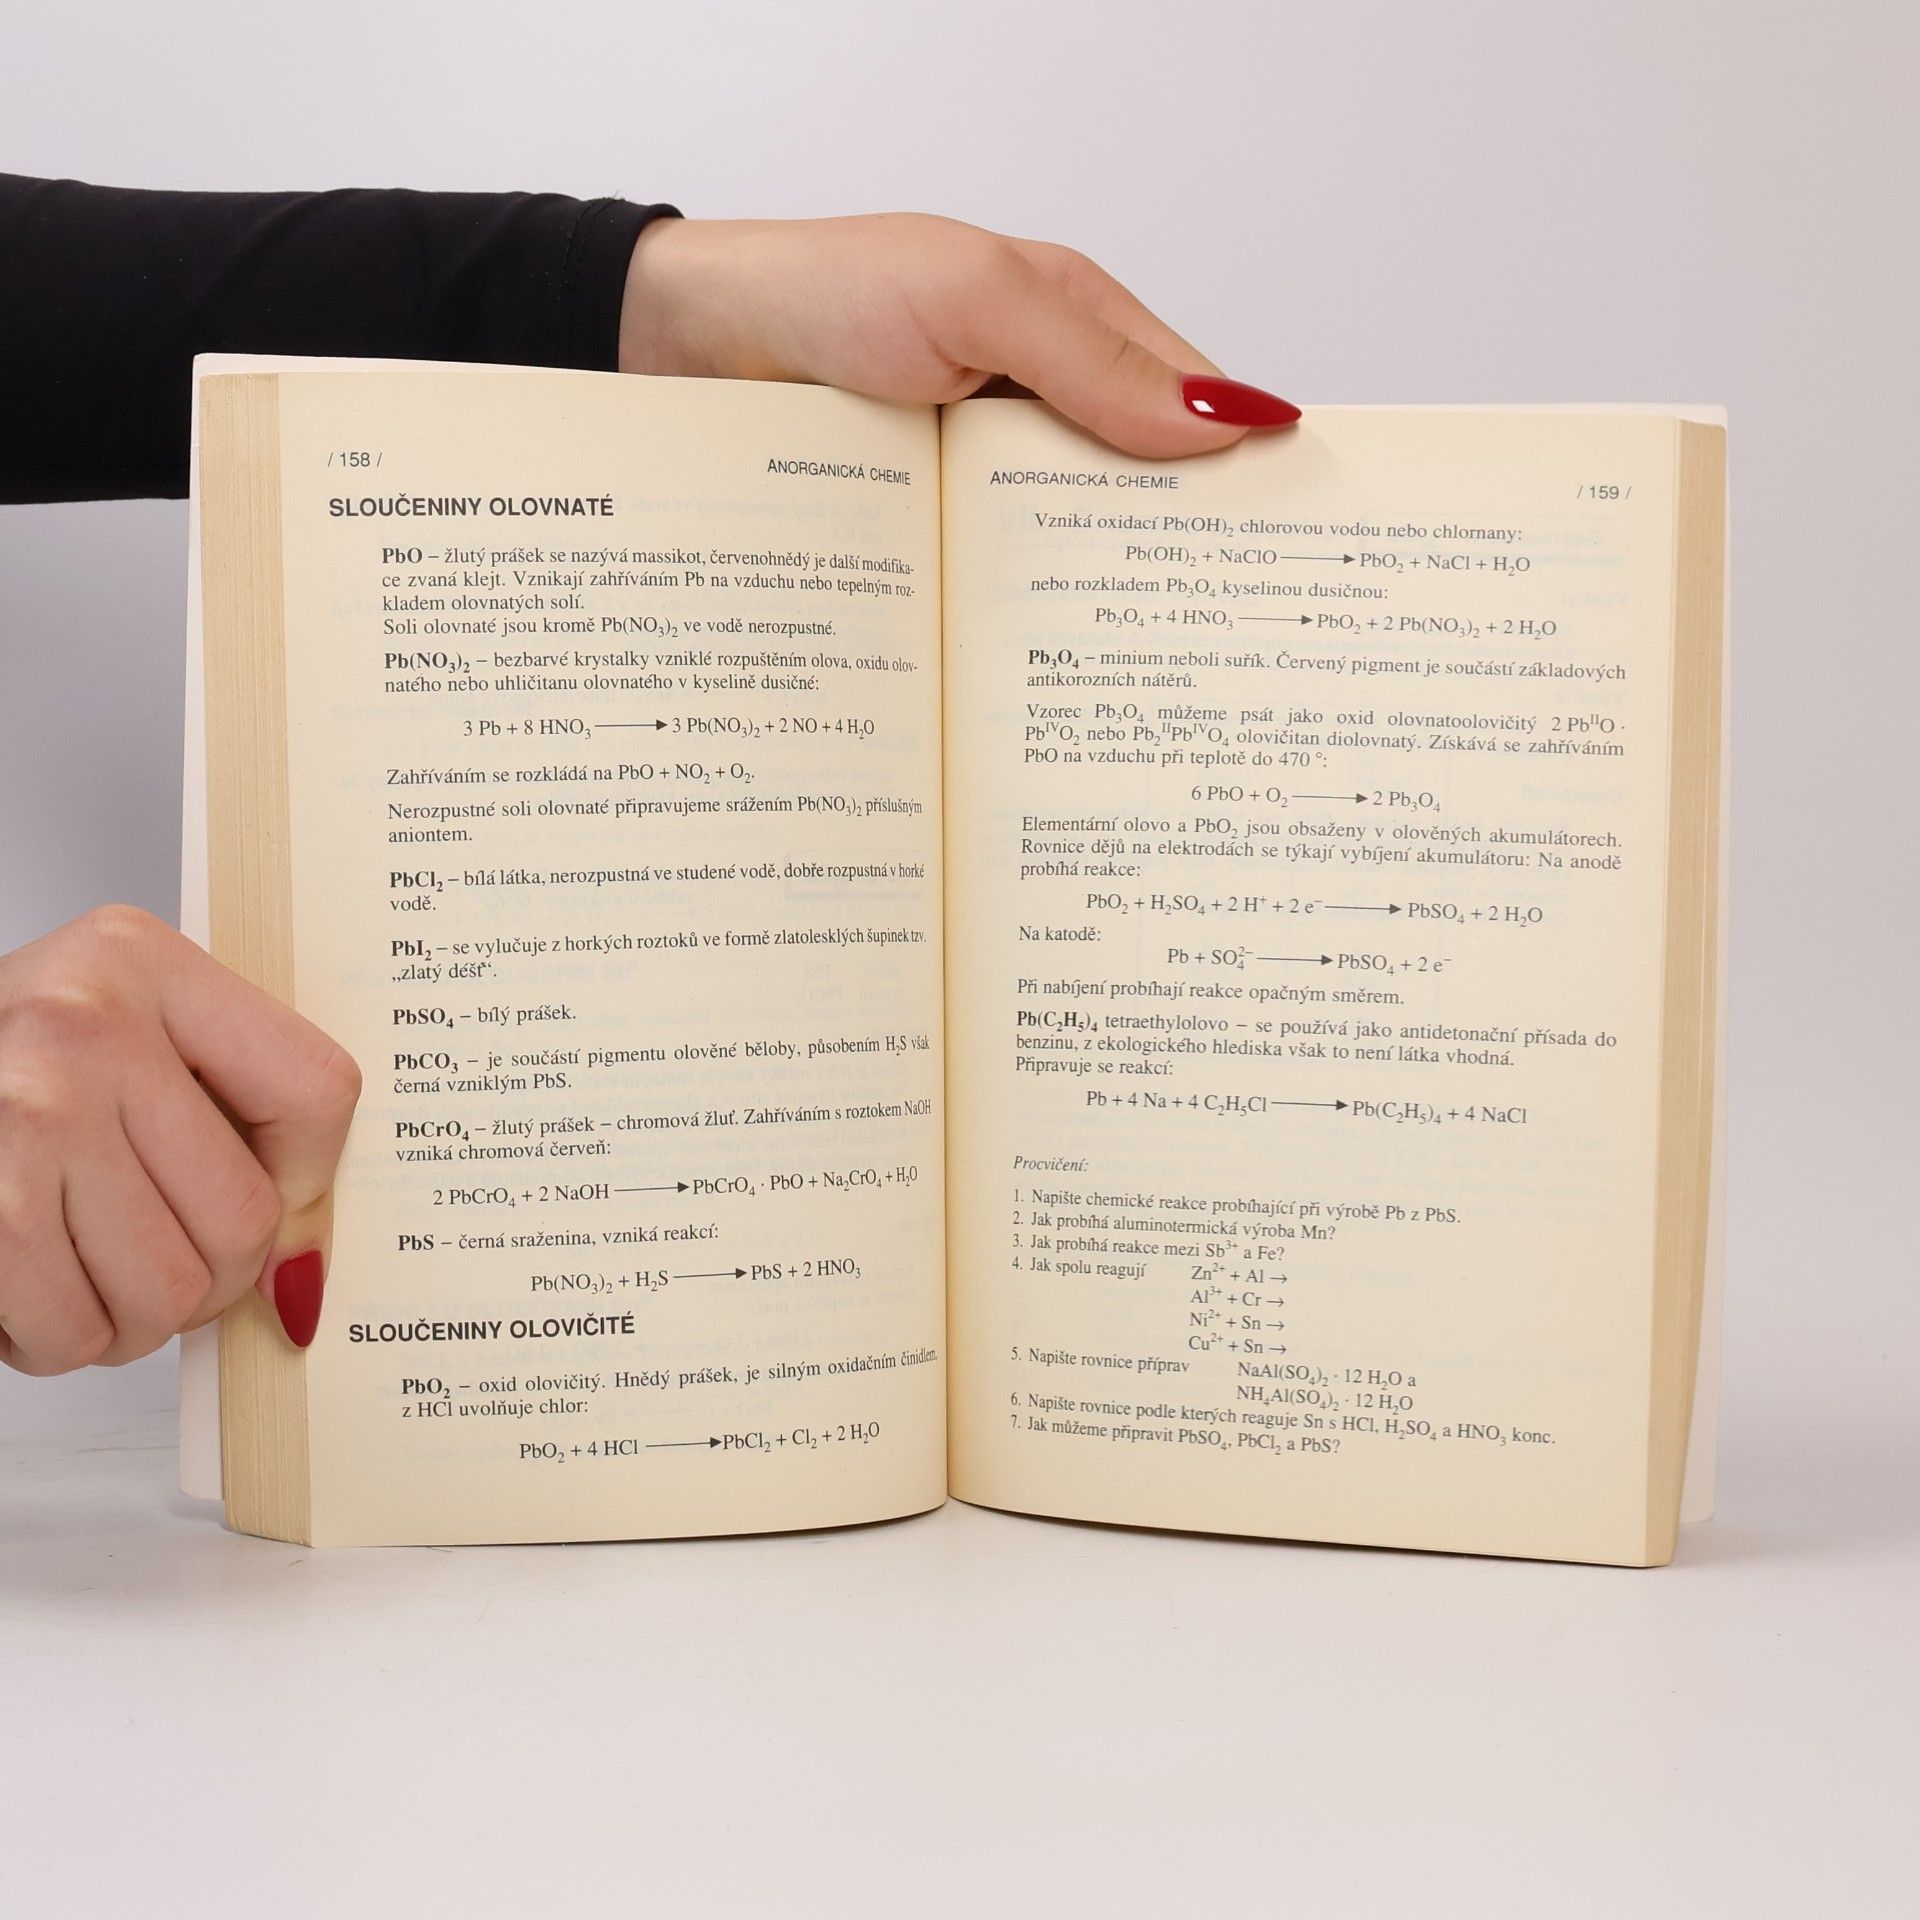 / 158 /
ANORGANICKÁ CHEMIE
SLOUČENINY OLOVNATÉ
PbO – žlutý prášek se nazývá massikot, červenohnědý je další modifika-
ce zvaná klejt. Vznikají zahříváním Pb na vzduchu nebo tepelným roz-
kladem olovnatých solí.
Soli olovnaté jsou kromě Pb(NO₃)₂ ve vodě nerozpustné.
Pb(NO₃)₂ – bezbarvé krystalky vzniklé rozpuštěním olova, oxidu olov-
natého nebo uhličitanu olovnatého v kyselině dusičné:
3 Pb + 8 HNO₃ ⟶ 3 Pb(NO₃)₂ + 2 NO + 4 H₂O
Zahříváním se rozkládá na PbO + NO₂ + O₂.
Nerozpustné soli olovnaté připravujeme srážením Pb(NO₃)₂ příslušným
aniontem.
PbCl₂ – bílá látka, nerozpustná ve studené vodě, dobře rozpustná v horké
vodě.
PbI₂ – se vylučuje z horkých roztoků ve formě zlatolesklých šupinek tzv.
„zlatý déšť“.
PbSO₄ – bílý prášek.
PbCO₃ – je součástí pigmentu olověné běloby, působením H₂S však
černá vzniklým PbS.
PbCrO₄ – žlutý prášek – chromová žluť. Zahříváním s roztokem NaOH
vzniká chromová červeň:
2 PbCrO₄ + 2 NaOH ⟶ PbCrO₄ · PbO + Na₂CrO₄ + H₂O
PbS – černá sraženina, vzniká reakcí:
Pb(NO₃)₂ + H₂S ⟶ PbS + 2 HNO₃
SLOUČENINY OLOVIČITÉ
PbO₂ – oxid olovičitý. Hnědý prášek, je silným oxidačním činidlem,
z HCl uvolňuje chlor:
PbO₂ + 4 HCl ⟶ PbCl₂ + Cl₂ + 2 H₂O
ANORGANICKÁ CHEMIE
/ 159 /
Vzniká oxidací Pb(OH)₂ chlorovou vodou nebo chlornany:
Pb(OH)₂ + NaClO ⟶ PbO₂ + NaCl + H₂O
nebo rozkladem Pb₃O₄ kyselinou dusičnou:
Pb₃O₄ + 4 HNO₃ ⟶ PbO₂ + 2 Pb(NO₃)₂ + 2 H₂O
Pb₃O₄ – minium neboli suřík. Červený pigment je součástí základových
antikorozních nátěrů.
Vzorec Pb₃O₄ můžeme psát jako oxid olovnatoolovičitý 2 PbᴵᴵO ·
PbᴵⱽO₂ nebo Pb₂ᴵᴵPbᴵⱽO₄ olovičitan diolovnatý. Získává se zahříváním
PbO na vzduchu při teplotě do 470 °:
6 PbO + O₂ ⟶ 2 Pb₃O₄
Elementární olovo a PbO₂ jsou obsaženy v olověných akumulátorech.
Rovnice dějů na elektrodách se týkají vybíjení akumulátoru: Na anodě
probíhá reakce:
PbO₂ + H₂SO₄ + 2 H⁺ + 2 e⁻ ⟶ PbSO₄ + 2 H₂O
Na katodě:
Pb + SO₄²⁻ ⟶ PbSO₄ + 2 e⁻
Při nabíjení probíhají reakce opačným směrem.
Pb(C₂H₅)₄ tetraethylolovo – se používá jako antidetonační přísada do
benzinu, z ekologického hlediska však to není látka vhodná.
Připravuje se reakcí:
Pb + 4 Na + 4 C₂H₅Cl ⟶ Pb(C₂H₅)₄ + 4 NaCl
Procvičení:
1. Napište chemické reakce probíhající při výrobě Pb z PbS.
2. Jak probíhá aluminotermická výroba Mn?
3. Jak probíhá reakce mezi Sb³⁺ a Fe?
4. Jak spolu reagují Zn²⁺ + Al →
Al³⁺ + Cr →
Ni²⁺ + Sn →
Cu²⁺ + Sn →
5. Napište rovnice příprav NaAl(SO₄)₂ · 12 H₂O a
NH₄Al(SO₄)₂ · 12 H₂O
6. Napište rovnice podle kterých reaguje Sn s HCl, H₂SO₄ a HNO₃ konc.
7. Jak můžeme připravit PbSO₄, PbCl₂ a PbS?